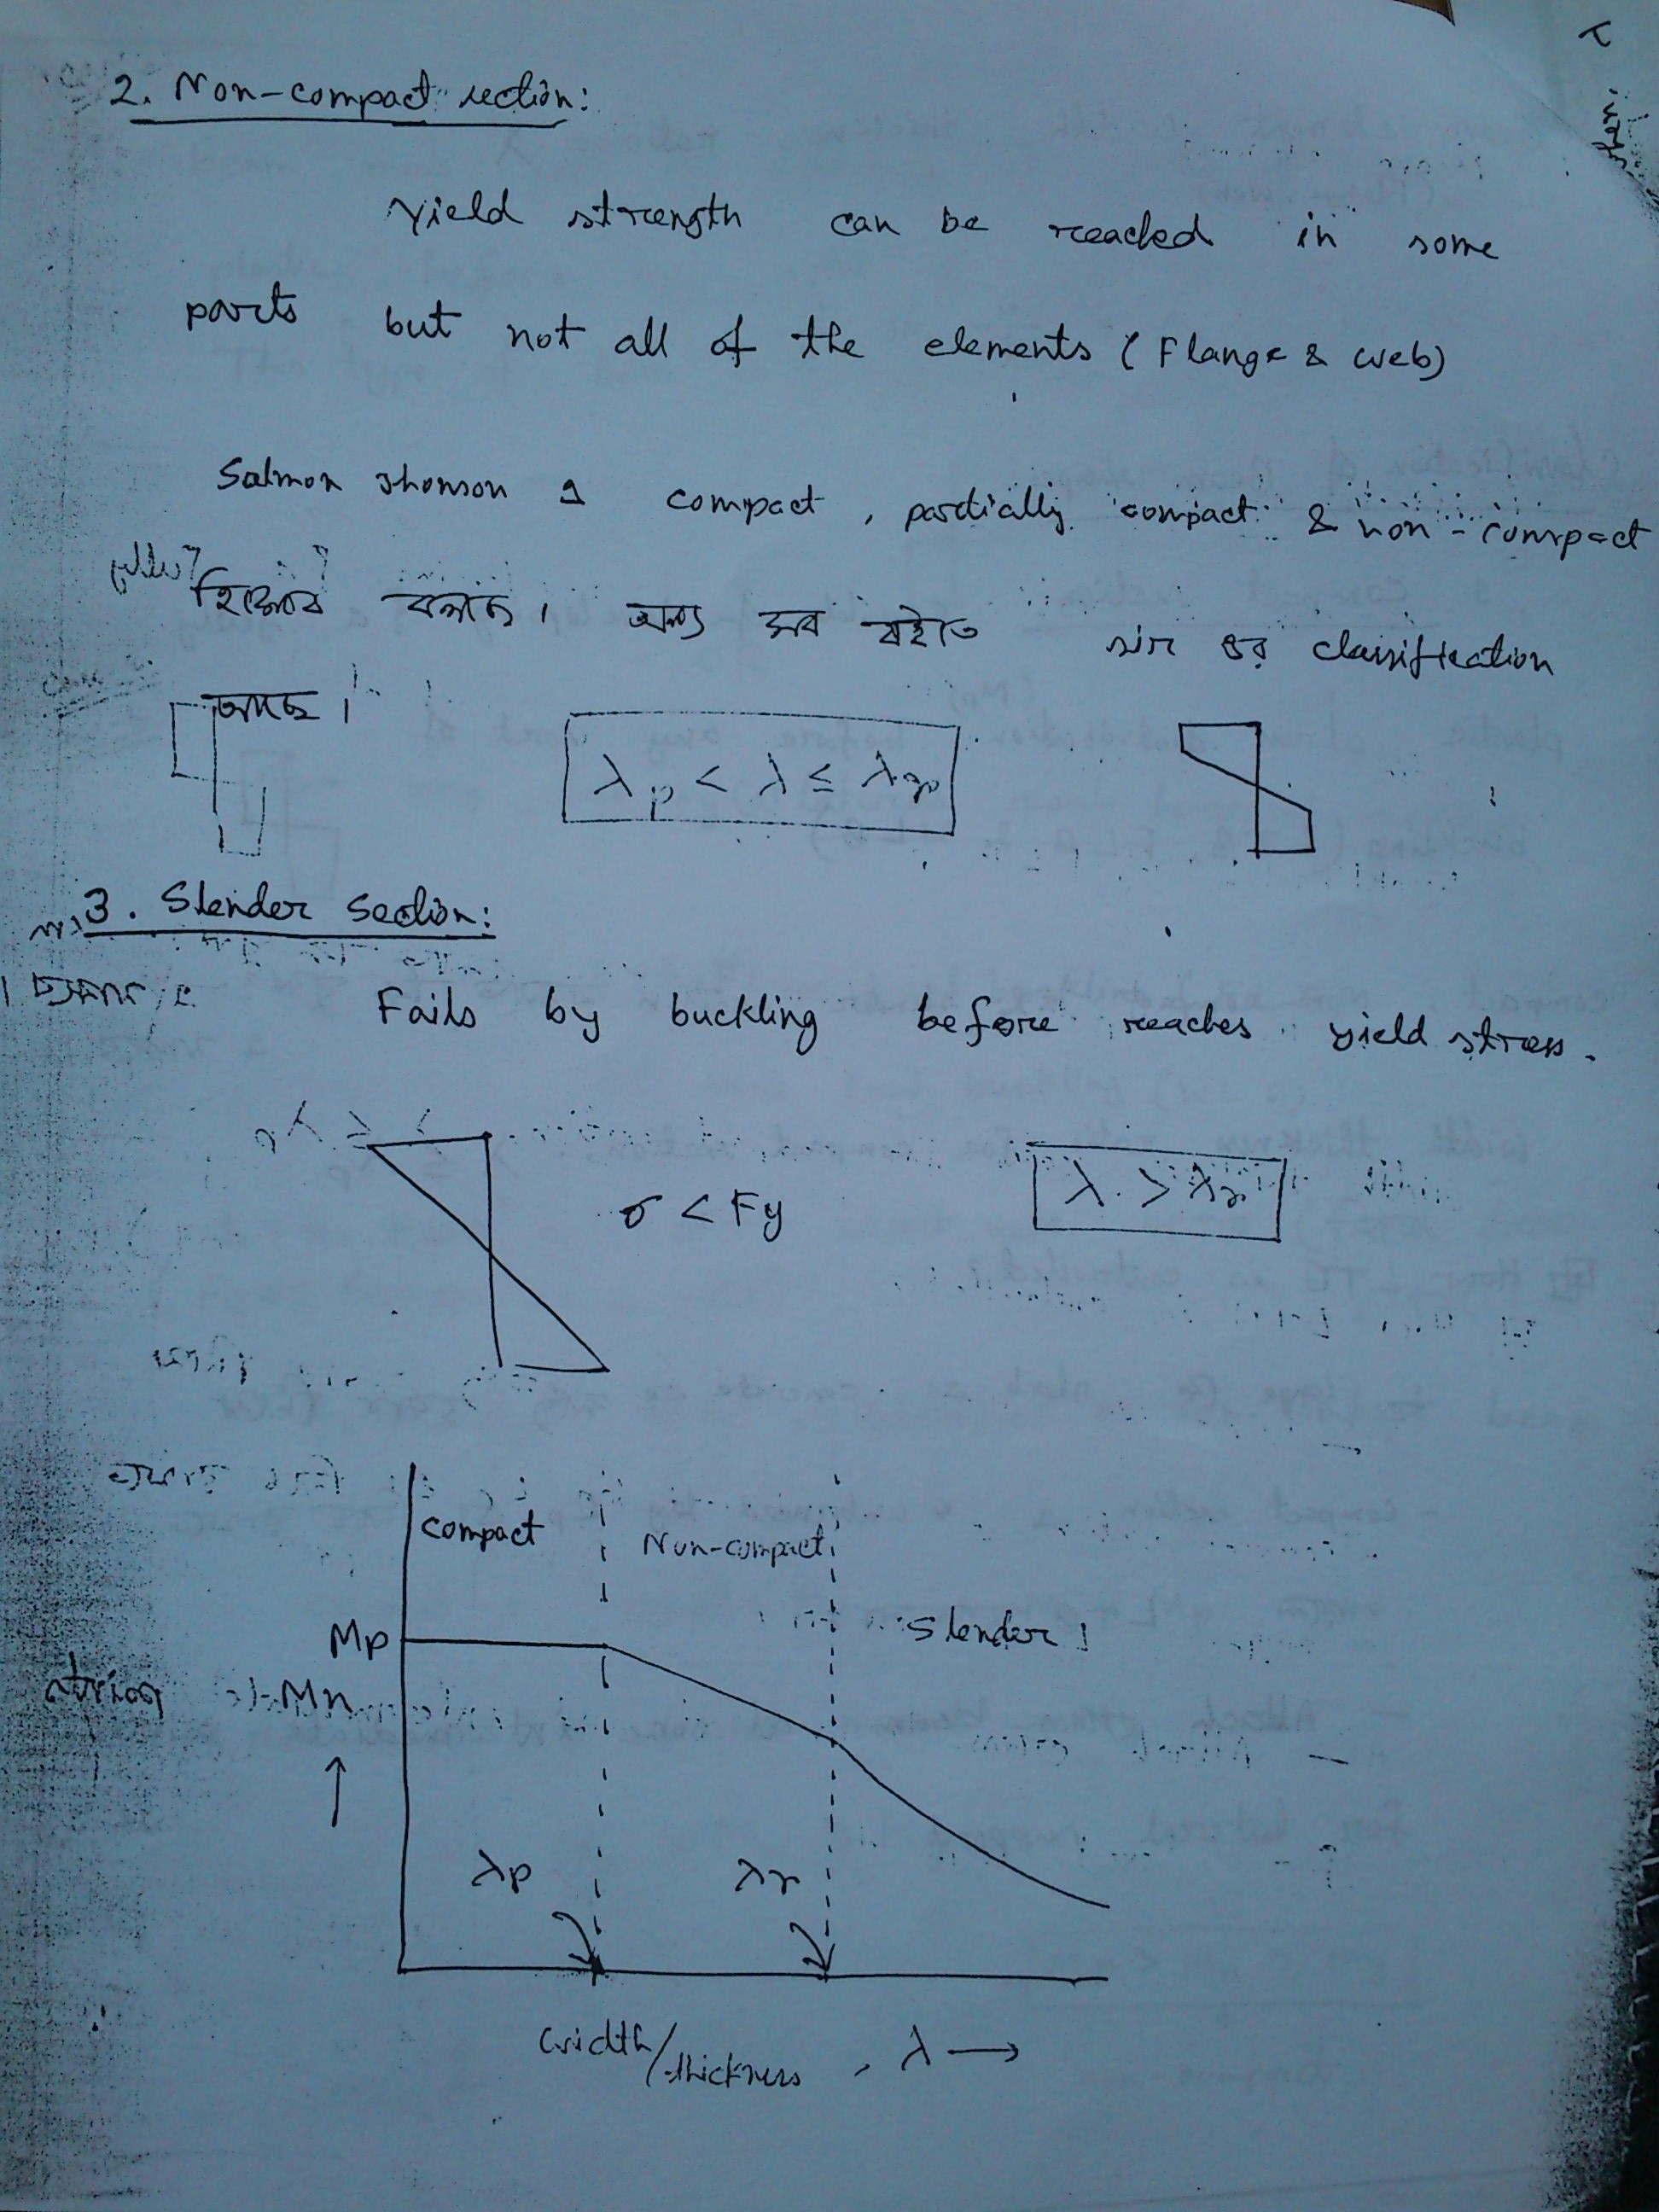 2. Non-compact section:
Yield strength can be reached in some
parts but not all of the elements (Flange & web)
Salmon Jhonson এ compact, partially compact & non-compact
হিসেবে বলছে। অন্য সব বইতে
classification
আছে।
λp < λ ≤ λr
3. Slender Section:
Fails by buckling before reaches yield stress.
σ < Fy
λ > λr
compact
Non-compact
Slender
Mp
Mn
λp
λr
width/thickness, λ →